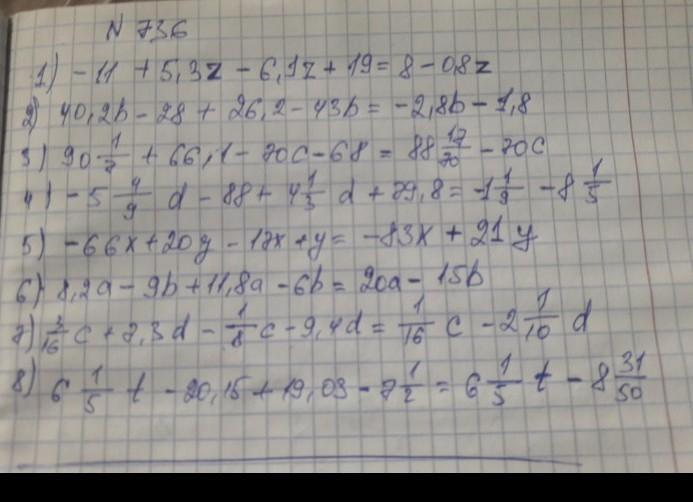 N 736
1) - 11 + 5,3z - 6,1z + 19 = 8 - 0,8z
2) 40,2b - 28 + 26,2 - 43b = -2,8b - 1,8
3) 90 1/7 + 66,1 - 70c - 68 = 88 17/70 - 70c
4) - 5 4/9 d - 88 + 4 1/3 d + 79,8 = -1 1/9 - 8 1/5
5) -66x + 20y - 17x + y = -83x + 21y
6) 8,2a - 9b + 11,8a - 6b = 20a - 15b
7) 3/16 c + 7,3d - 1/8 c - 9,4d = 1/16 c - 2 1/10 d
8) 6 1/5 t - 20,15 + 19,03 - 7 1/2 = 6 1/5 t - 8 31/50